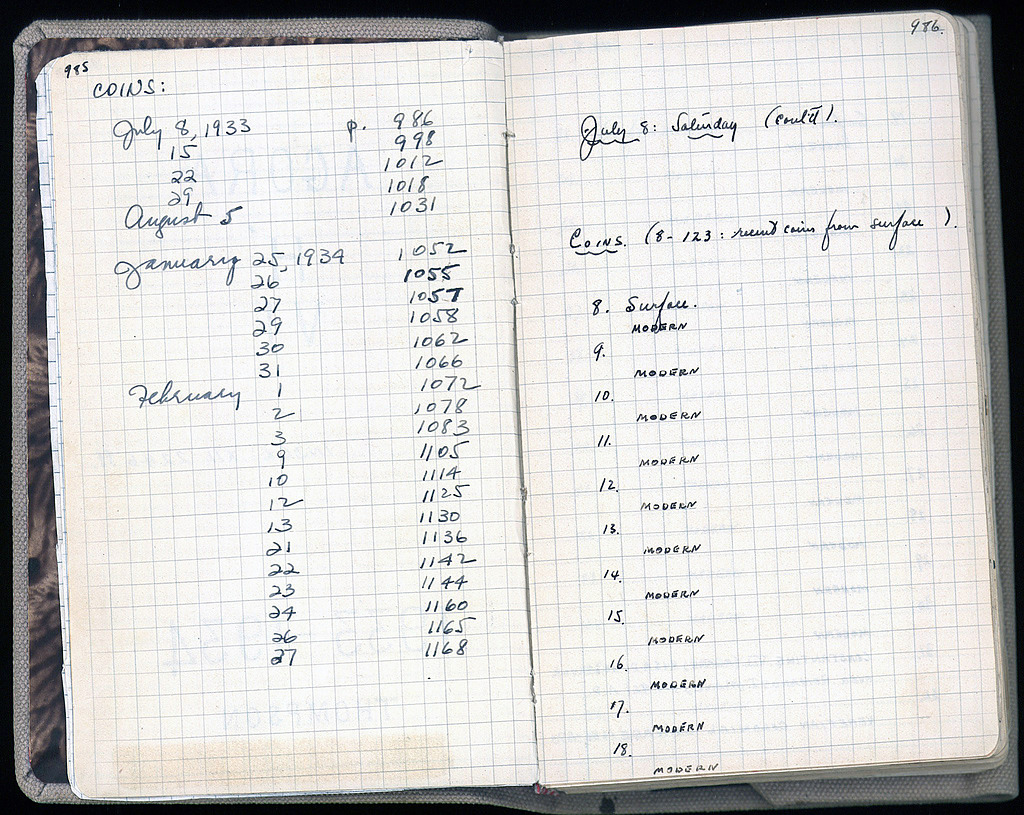 985
COINS:
July 8, 1933 p. 986
15 998
22 1012
29 1018
August 5 1031
January 25, 1934 1052
26 1055
27 1057
29 1058
30 1062
31 1066
February 1 1072
2 1078
3 1083
9 1105
10 1114
12 1125
13 1130
21 1136
22 1142
23 1144
24 1160
26 1165
27 1168
986.
July 8: Saturday (cont'd).
COINS. (8-123: recent coins from surface ).
8. Surface.
MODERN
9.
MODERN
10.
MODERN
11.
MODERN
12.
MODERN
13.
MODERN
14.
MODERN
15.
MODERN
16.
MODERN
17.
MODERN
18.
MODERN